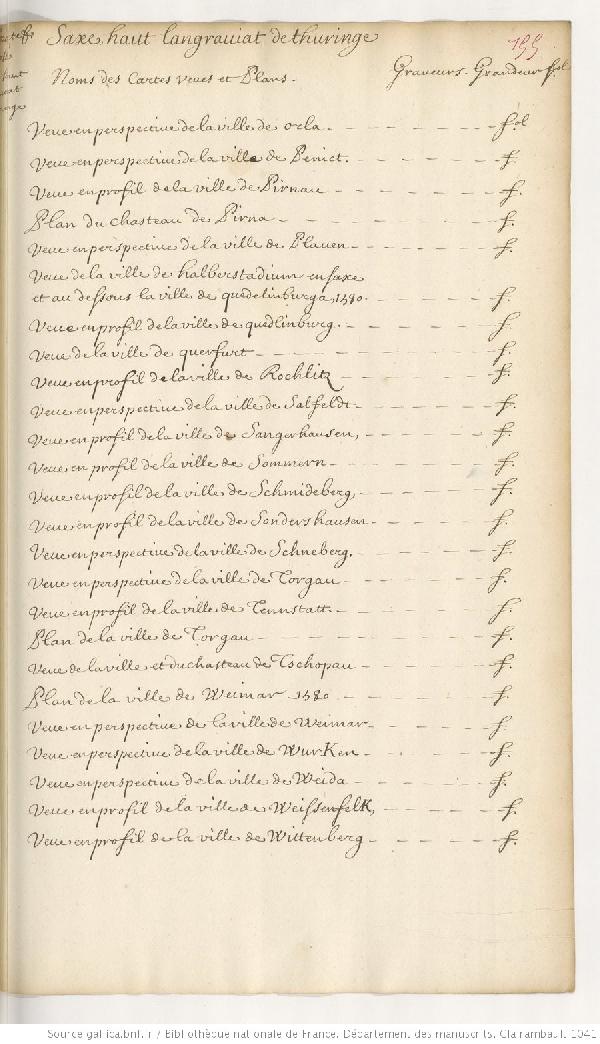 Saxe, haut langrauiat de thuringe
155
Noms des Cartes veues et Plans. Graveurs. Grandeur fol
Veue en perspective de la ville de orla. fol
Veue en perspective de la ville de Penict. f.
Veue en profil de la ville de Pirnau f.
Plan du chasteau de Pirna f.
Veue en perspective de la ville de Plauen f.
Veue de la ville de halberstadium en saxe
et au dessous la ville de quedelinburga, 1580. f.
Veue en profil de la ville de quedlinburg. f.
Veue de la ville de querfurt f.
Veue en profil de la ville de Rochlitz f.
Veue en perspective de la ville de Salfeldt f.
Veue en profil de la ville de Sangerhausen, f.
Veue en profil de la ville de Sommern f.
Veue en profil de la ville de Schmideberg, f.
Veue en profil de la ville de Sondershausen f.
Veue en perspective de la ville de Schneberg. f.
Veue en perspective de la ville de Torgau f.
Veue en profil de la ville de Tennstatt f.
Plan de la ville de Torgau f.
Veue de la ville et du chasteau de Tschopau f.
Plan de la ville de Weimar 1580 f.
Veue en perspective de la ville de Weimar f.
Veue en perspective de la ville de WurKen f.
Veue en perspective de la ville de Weida f.
Veue en profil de la ville de Weissenfelk, f.
Veue en profil de la ville de Wittenberg f.
Source gallica.bnf.fr / Bibliothèque nationale de France. Département des manuscrits. Clairambault 1041